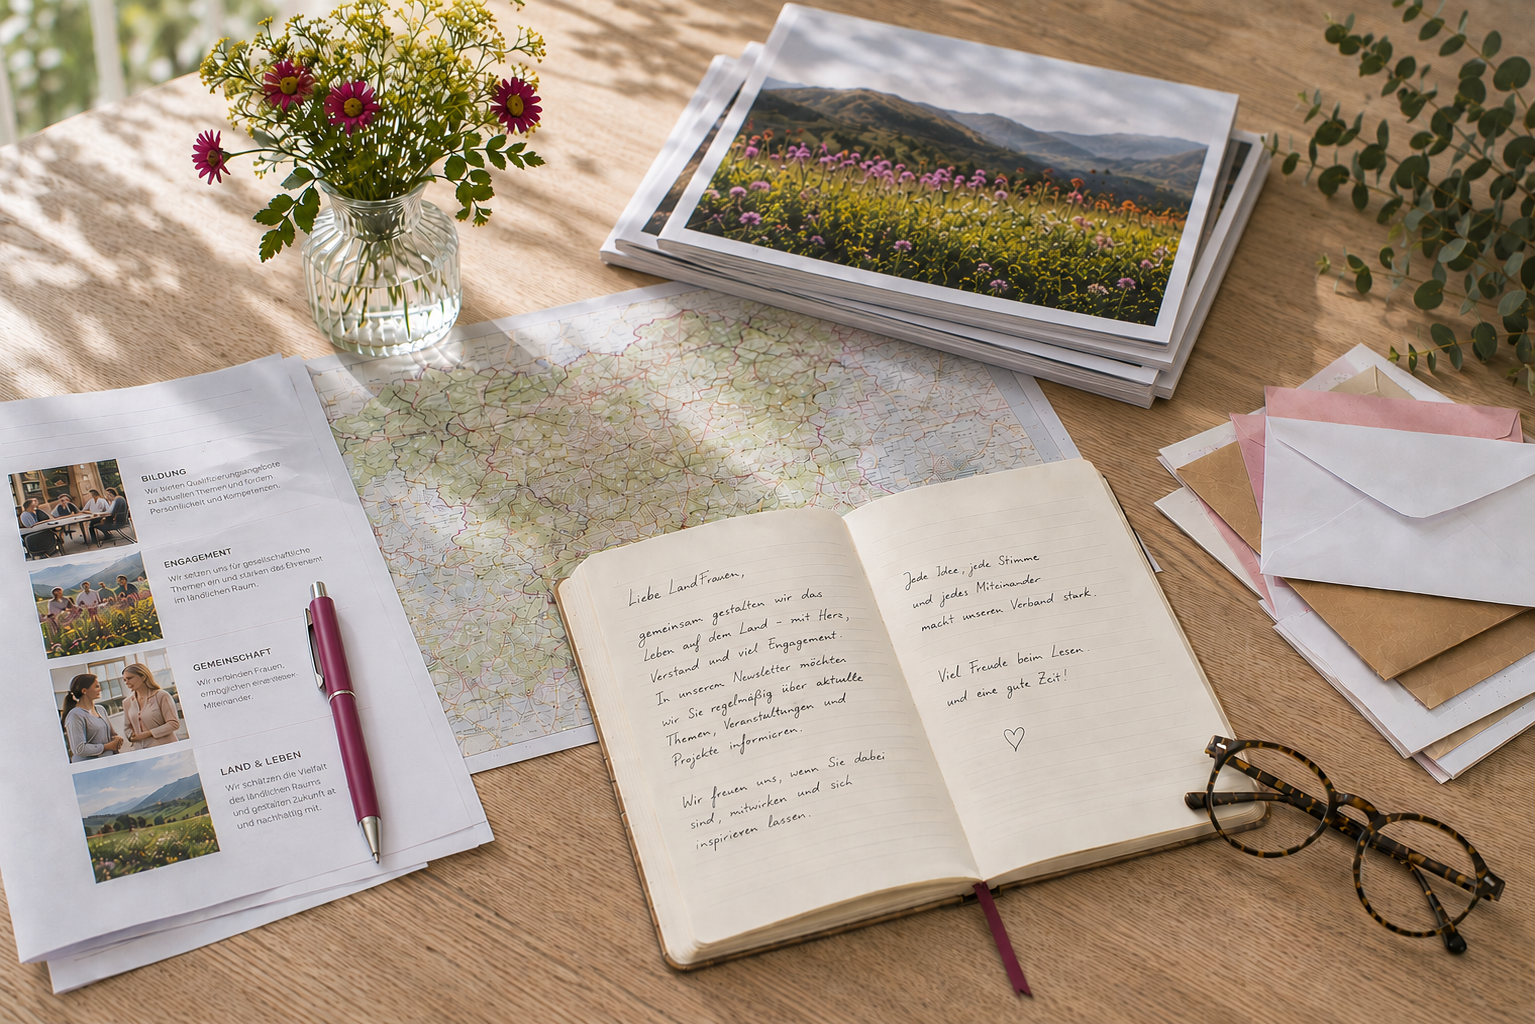 BILDUNG
Wir bieten Qualifizierungsangebote
zu aktuellen Themen und fördern
Persönlichkeit und Kompetenzen.
ENGAGEMENT
Wir setzen uns für gesellschaftliche
Themen ein und stärken das Ehrenamt
im ländlichen Raum.
GEMEINSCHAFT
Wir verbinden Frauen,
ermöglichen
Miteinander.
LAND & LEBEN
Wir schätzen die Vielfalt
des ländlichen Raums
und gestalten Zukunft
und nachhaltig mit.
Liebe LandFrauen,
gemeinsam gestalten wir das
Leben auf dem Land – mit Herz,
Verstand und viel Engagement.
In unserem Newsletter möchten
wir Sie regelmäßig über aktuelle
Themen, Veranstaltungen und
Projekte informieren.
Wir freuen uns, wenn Sie dabei
sind, mitwirken und sich
inspirieren lassen.
Jede Idee, jede Stimme
und jedes Miteinander
macht unseren Verband stark.
Viel Freude beim Lesen
und eine gute Zeit!